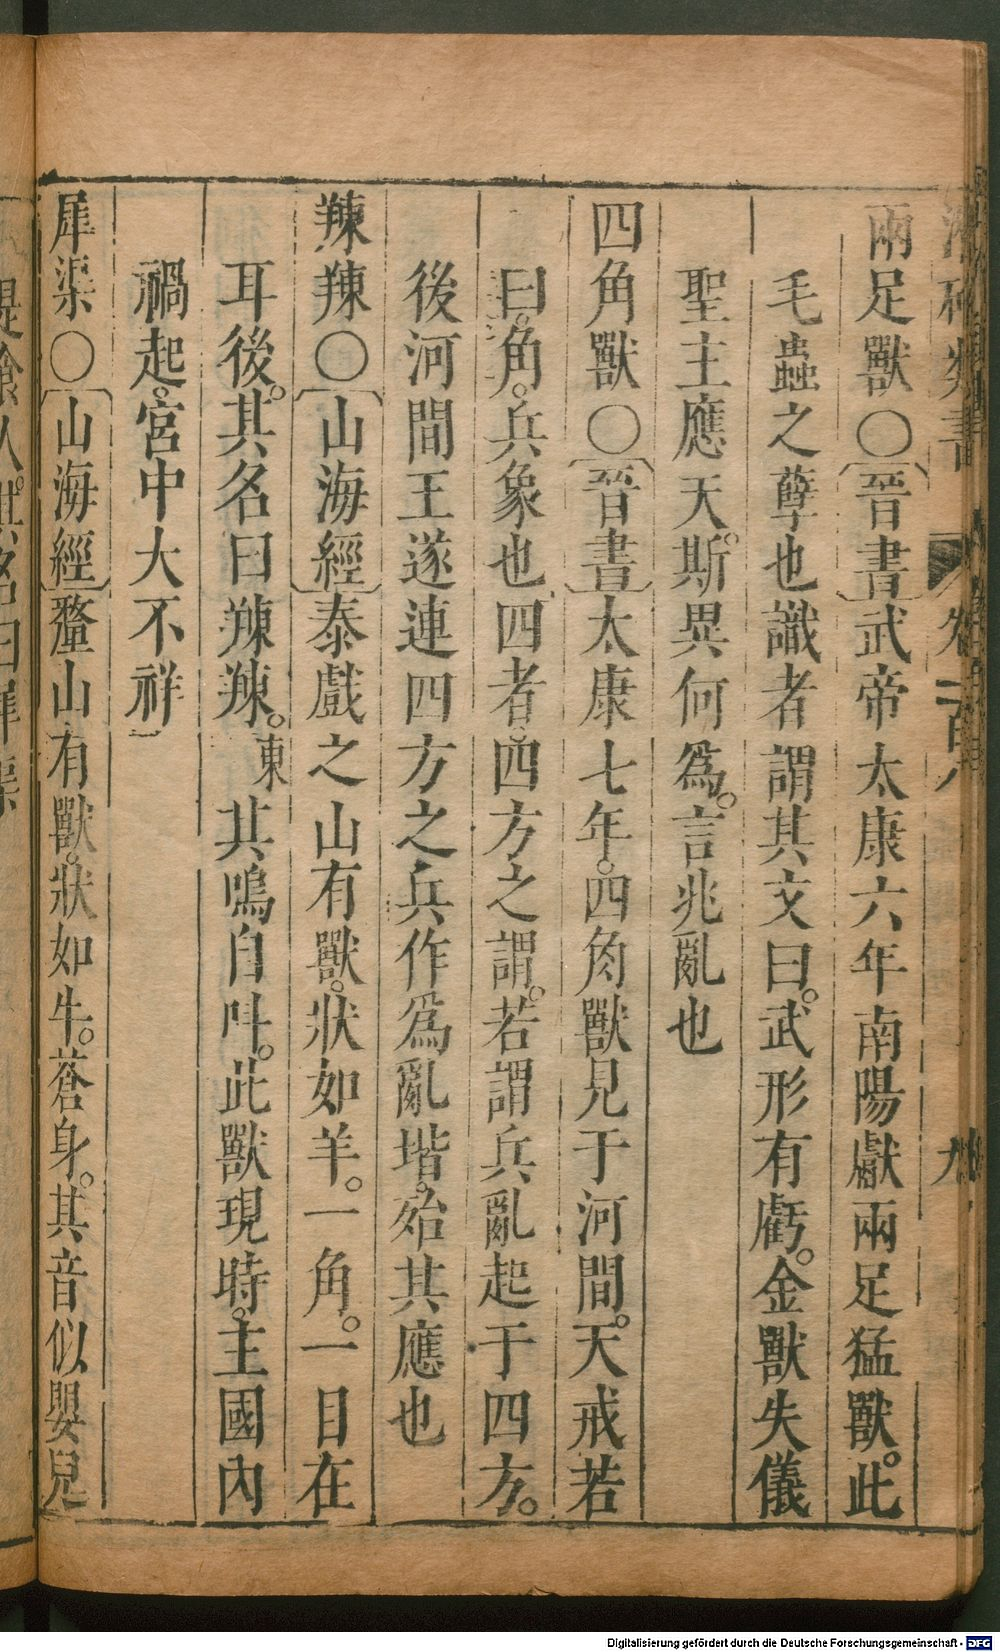 兩足獸○〔晉書〕武帝太康六年南陽獻兩足猛獸。此
毛蟲之孽也識者謂其文曰。武形有虧。金獸失儀
聖主應天。斯異何為。言兆亂也
四角獸○〔晉書〕太康七年。四角獸見于河間。天戒若
曰。角。兵象也四者。四方之謂。若謂兵亂起于四方。
後河間王遂連四方之兵作為亂堦。殆其應也
𦍙𦍙○〔山海經〕泰戲之山有獸。狀如羊。一角。一目在
耳後。其名曰𦍙𦍙。東其鳴自呌。此獸現時。主國內
禍起。宮中大不祥
犀渠○〔山海經〕釐山有獸。狀如牛。蒼身。其音似嬰兒
Digitalisierung gefördert durch die Deutsche Forschungsgemeinschaft - DFG